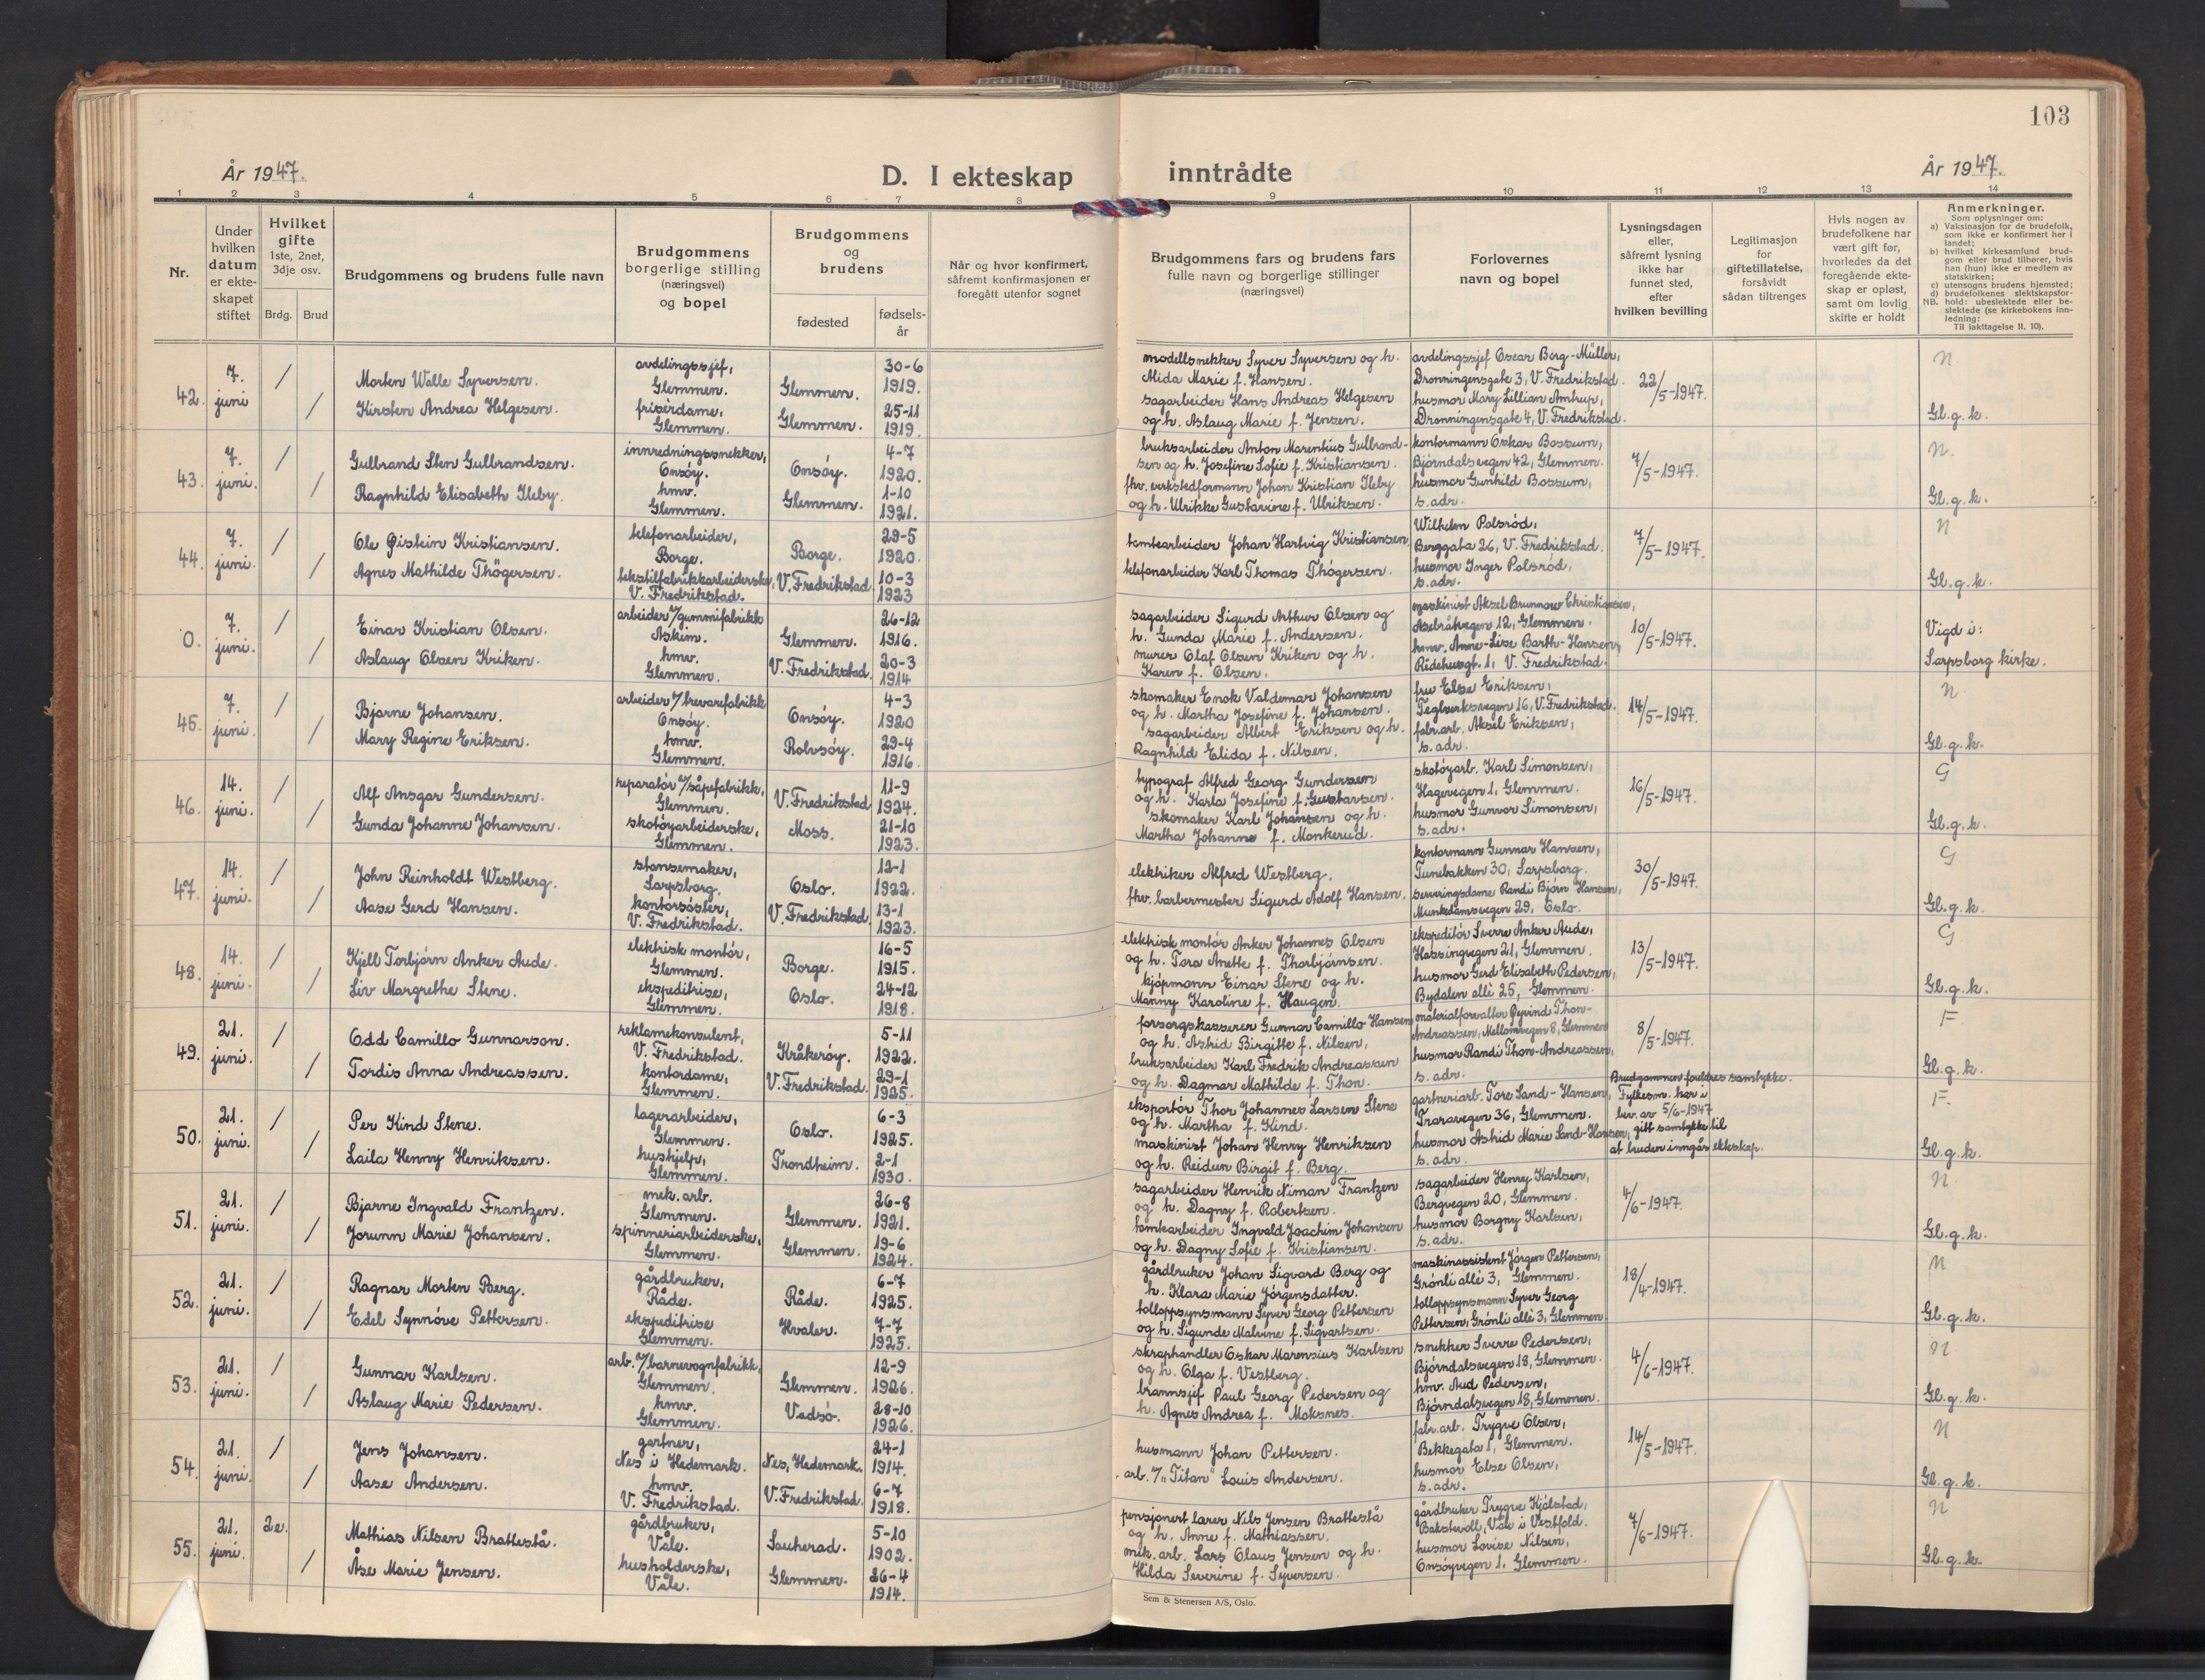 103
År 1947.
D. I ekteskap inntrådte
År 1947.
1 2 3 4 5 6 7 8 9 10 11 12 13 14
Nr.
Under hvilken datum er ekteskapet stiftet
Hvilket gifte 1ste, 2net, 3dje osv.
Brdg. Brud
Brudgommens og brudens fulle navn
Brudgommens borgerlige stilling (næringsvei) og bopel
Brudgommens og brudens
fødested
fødsels-år
Når og hvor konfirmert, såfremt konfirmasjonen er foregått utenfor sognet
Brudgommens fars og brudens fars fulle navn og borgerlige stillinger (næringsvei)
Forlovernes navn og bopel
Lysningsdagen eller, såfremt lysning ikke har funnet sted, efter hvilken bevilling
Legitimasjon for giftetillatelse, forsåvidt sådan tiltrenges
Hvis nogen av brudefolkene har vært gift før, hvorledes da det foregående ekteskap er opløst, samt om lovlig skifte er holdt
Anmerkninger.
Som oplysninger om:
a) Vaksinasjon for de brudefolk, som ikke er konfirmert her i landet;
b) hvilket kirkesamfund brudgom eller brud tilhører, hvis han (hun) ikke er medlem av statskirken;
c) utensogns brudens hjemsted;
d) brudefolkenes slektskapsforhold: ubeslektede eller beslektede (se kirkebokens innledning:
NB. Til iakttagelse II. 10).
42. 7. juni / /
Morten Walle Syversen.
Kirsten Andrea Helgesen.
avdelingssjef,
Glemmen.
frisèrdame,
Glemmen.
Glemmen. 30-6 1919.
Glemmen. 25-11 1919.
modellsnekker Syver Syversen og h.
Alida Marie f. Hansen.
sagarbeider Hans Andreas Helgesen
og h. Aslaug Marie f. Jensen.
avdelingssjef Oscar Borg-Müller,
Dronningensgate 3, V. Fredrikstad.
husmor Mary Lillian Amtrup,
Dronningensgate 4, V. Fredrikstad.
22/5-1947.
N.
Gl.g.k.
43. 7. juni. / /
Gulbrand Sten Gulbrandsen.
Ragnhild Elisabeth Ileby.
innredningssnekker,
Onsøy.
hmv.
Glemmen.
Onsøy. 4-7 1920.
Glemmen. 1-10 1921.
bruksarbeider Anton Marentius Gulbrand-
sen og h. Josefine Sofie f. Kristiansen.
fhv. verkstedformann Johan Kristian Ileby
og h. Ulrikke Gustaviene f. Ulriksen.
kontormann Oskar Bossum,
Bjørndalsvegen 42, Glemmen.
husmor Gunhild Bossum,
s. adr.
7/5-1947.
N.
Gl.g.k.
44. 7. juni. / /
Ole Øistein Kristiansen.
Agnes Mathilde Thøgersen.
telefonarbeider,
Borge.
tekstilfabrikkarbeiderske,
V. Fredrikstad.
Borge. 29-5 1920.
V. Fredrikstad. 10-3 1923
tomtearbeider Johan Hartvig Kristiansen.
telefonarbeider Karl Thomas Thøgersen.
Wilhelm Polsrød,
Berggata 26, V. Fredrikstad.
husmor Inger Polsrød,
s. adr.
7/5-1947.
N
Gl.g.k.
0. 7. juni. / /
Einar Kristian Olsen.
Aslaug Olsen Kriken.
arbeider v/gummifabrikk
Askim.
hmv.
Glemmen.
Glemmen. 26-12 1916.
V. Fredrikstad. 20-3 1914
sagarbeider Sigurd Arthur Olsen og
h. Gunda Marie f. Andersen.
murer Olaf Olsen Kriken og h.
Karen f. Olsen.
maskinist Aksel Brunnow Christiansen,
Aselråkvegen 12, Glemmen.
hmv. Anne-Lise Barth-Hansen,
Ridehusgt. 1, V. Fredrikstad.
10/5-1947.
Vigd i:
Sarpsborg kirke.
45. 7. juni. / /
Bjarne Johansen.
Mary Regine Eriksen.
arbeider v/trevarefabrikk
Onsøy.
hmv.
Glemmen.
Onsøy. 4-3 1920
Rolvsøy. 29-4 1916.
skomaker Enok Valdemar Johansen
og h. Martha Josefine f. Johansen.
sagarbeider Albert Eriksen og h.
Ragnhild Elida f. Nilsen.
fru Else Eriksen,
Teglverksvegen 16, V. Fredrikstad.
fabr.arb. Aksel Eriksen,
s. adr.
14/5-1947.
N
Gl.g.k.
46. 14. juni. / /
Alf Ansgar Gundersen.
Gunda Johanne Johansen.
reparatør v/såpefabrikk,
Glemmen.
skotøyarbeiderske,
Glemmen.
V. Fredrikstad 11-9 1924.
Moss. 21-10 1923.
typograf Alfred Georg Gundersen
og h. Karla Josefine f. Gustavsen.
skomaker Karl Johansen og h.
Martha Johanne f. Monkerud.
skotøyarb. Karl Simonsen,
Hagevegen 1, Glemmen.
husmor Gunvor Simonsen,
s. adr.
16/5-1947.
G
Gl.g.k.
47. 14. juni. / /
John Reinholdt Westberg.
Aase Gerd Hansen.
stansemaker,
Sarpsborg.
kontorsøster,
V. Fredrikstad.
Oslo. 12-1 1922.
V. Fredrikstad 13-1 1923.
elektriker Alfred Westberg.
fhv. barbermester Sigurd Adolf Hansen.
kontormann Gunnar Hansen,
Tunebakken 30, Sarpsborg.
serveringsdame Randi Bjørn Hansen,
Munkedamsvegen 29, Oslo.
30/5-1947.
G
Gl.g.k.
48. 14. juni. / /
Kjell Torbjørn Anker Aude.
Liv Margrethe Stene.
elektrisk montør,
Glemmen.
ekspeditrise,
Glemmen.
Borge. 16-5 1915.
Oslo. 24-12 1918.
elektrisk montør Anker Johannes Olsen
og h. Tora Anette f. Thorbjørnsen.
kjøpmann Einar Stene og h.
Manny Karoline f. Haugen.
ekspeditør Sverre Anker Aude,
Hassingvegen 21, Glemmen.
husmor Gerd Elisabeth Pedersen,
Bydalen allè 25, Glemmen.
13/5-1947.
G
Gl.g.k.
49. 21. juni. / /
Odd Camillo Gunnarson.
Tordis Anna Andreassen.
reklamekonsulent,
V. Fredrikstad.
kontordame,
Glemmen.
Kråkerøy. 5-11 1922.
V. Fredrikstad. 29-1 1925.
forsorgskasserer Gunnar Camillo Hansen
og h. Astrid Birgitte f. Nilsen,
bruksarbeider Karl Fredrik Andreassen
og h. Dagmar Mathilde f. Thon.
materialforvalter Øyvind Thon-
Andreassen, Mellomvegen 8, Glemmen
husmor Randi Thon-Andreassen,
s. adr.
8/5-1947.
F
Gl.g.k.
50. 21. juni. / /
Per Kind Stene.
Laila Henny Henriksen.
lagerarbeider,
Glemmen.
hushjelp,
Glemmen.
Oslo. 6-3 1925.
Trondheim. 2-1 1930.
eksportør Thor Johannes Larsen Stene
og h. Martha f. Kind.
maskinist Johan Henry Henriksen
og h. Reidun Birgit f. Berg.
gartneriarb. Tore Sand-Hansen,
Traravegen 36, Glemmen.
husmor Astrid Marie Sand-Hansen,
s. adr.
Brudgommen foreldres samtykke.
Fylkesm. har i
bev. av 5/6-1947
gitt samtykke til
at bruden inngår ekteskap.
F.
Gl.g.k.
51. 21. juni. / /
Bjarne Ingvald Frantzen.
Jorunn Marie Johansen.
mek. arb.
Glemmen.
spinneriarbeiderske,
Glemmen.
Glemmen. 26-8 1921.
Glemmen. 19-6 1924.
sagarbeider Henrik Niman Frantzen
og h. Dagny f. Robertsen.
tomtearbeider Ingvald Joachim Johansen
og h. Dagny Sofie f. Kristiansen.
sagarbeider Henry Karlsen,
Bergvegen 20, Glemmen.
husmor Borgny Karlsen,
s. adr.
4/6-1947.
N.
Gl.g.k.
52. 21. juni. / /
Ragnar Morten Berg.
Edel Synnøve Pettersen.
gårdbruker,
Råde.
ekspeditrise
Glemmen.
Råde. 6-7 1925.
Hvaler. 7-7 1925.
gårdbruker Johan Sigvard Berg og
h. Klara Marie Jørgensdatter.
tolloppsynsmann Syver Georg Pettersen
og h. Sigunde Malvine f. Sigvartsen.
maskinassistent Jørgen Pettersen,
Grønli allè 3, Glemmen.
tolloppsynsmann Syver Georg
Pettersen, Grønli allè 3, Glemmen.
18/4-1947.
N
Gl.g.k.
53. 21. juni. / /
Gunnar Karlsen.
Aslaug Marie Pedersen.
arb. v/barnevognfabrikk,
Glemmen.
hmv.
Glemmen.
Glemmen. 12-9 1926.
Vadsø. 28-10 1926.
skraphandler Oskar Marensius Karlsen
og h. Olga f. Vestberg.
brannsjef Paul Georg Pedersen og
h. Agnes Andrea f. Moksnes.
snekker Sverre Pedersen,
Bjørndalsvegen 18, Glemmen.
hmv. Aud Pedersen,
Bjørndalsvegen 18, Glemmen.
4/6-1947.
N
Gl.g.k.
54. 21. juni. / /
Jens Johansen.
Aase Andersen.
gartner,
Nes i Hedemark.
hmv.
V. Fredrikstad.
Nes, Hedemark. 24-1 1914.
V. Fredrikstad. 6-7 1918.
husmann Johan Pettersen.
arb. v/„Titan" Louis Andersen.
fabr.arb. Trygve Olsen,
Bekkegata 1, Glemmen.
husmor Else Olsen,
s. adr.
14/5-1947.
N
Gl.g.k.
55. 21. juni. 2e. /
Mathias Nilsen Brattestå.
Åse Marie Jensen.
gårdbruker,
Våle.
husholderske,
Våle.
Sauherad. 5-10 1902.
Glemmen. 26-4 1914.
pensjonert lærer Nils Jensen Brattestå
og h. Anne f. Mathiassen.
mek. arb. Lars Claus Jensen og h.
Hilda Severine f. Syversen.
gårdbruker Trygve Kjølstad,
Bakstvoll, Våle i Vestfold.
husmor Lovise Nilsen,
Onsøyvegen 1, Glemmen.
7/6-1947.
N
Gl.g.k.
Sem & Stenersen A/S, Oslo.